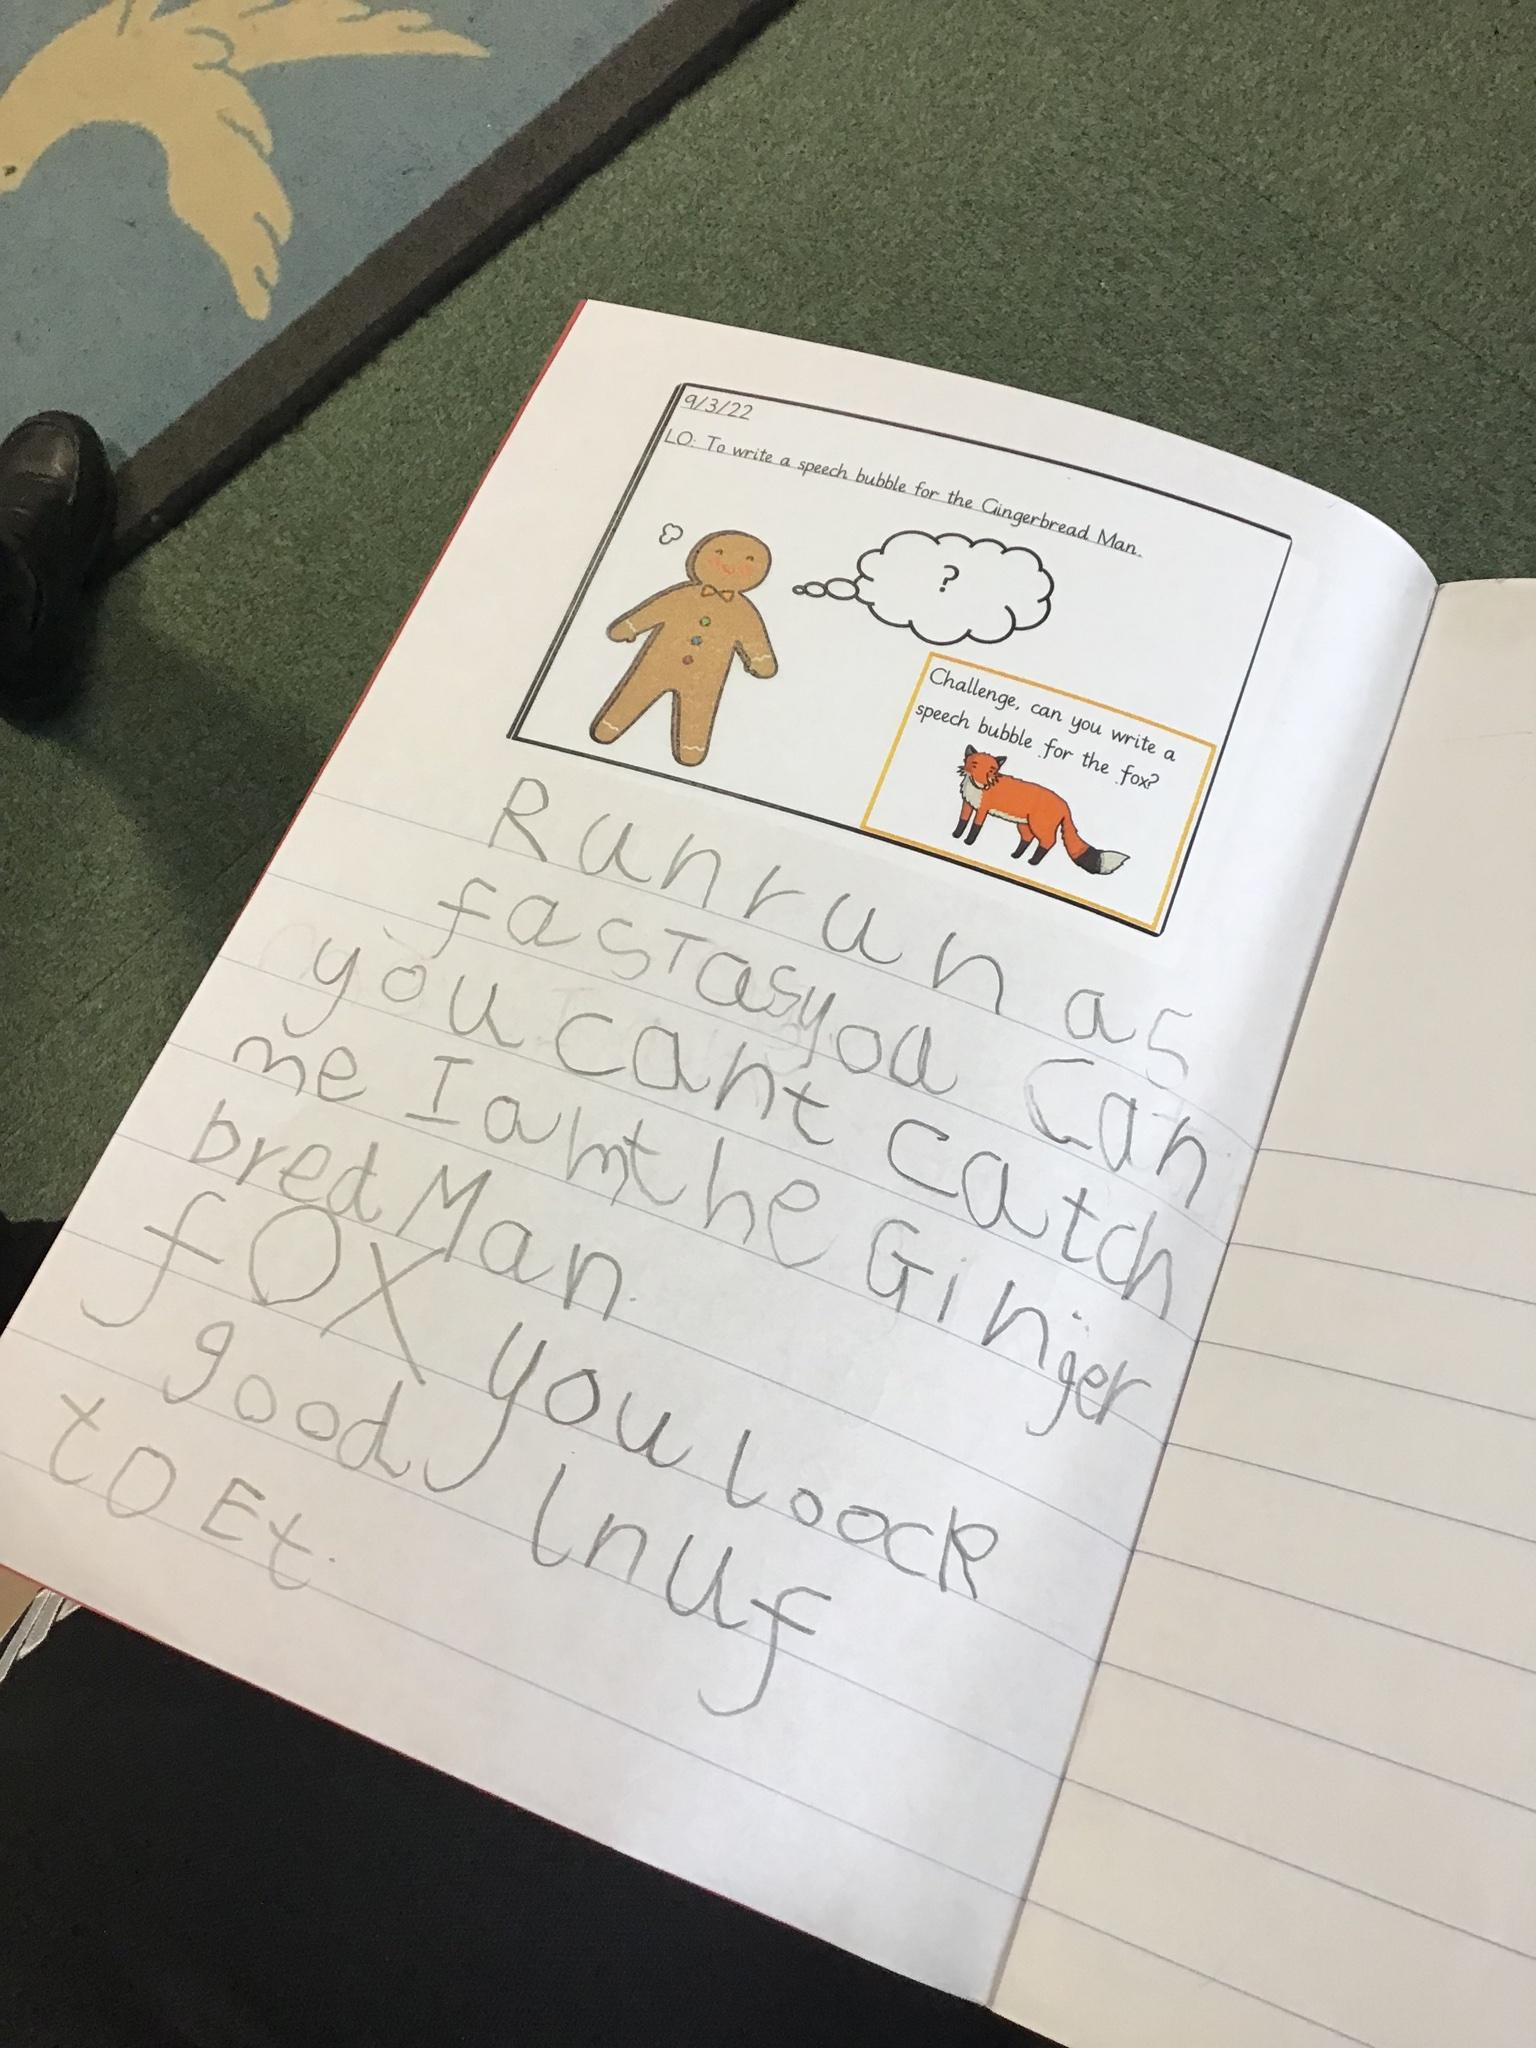 9/3/22
LO: To write a speech bubble for the Gingerbread Man.
?
Challenge, can you write a
speech bubble for the fox?
Run run as
fast as you can
you cant catch
me I am the Ginger
bred Man.
fOX you loock
good Inuf
tO Et.